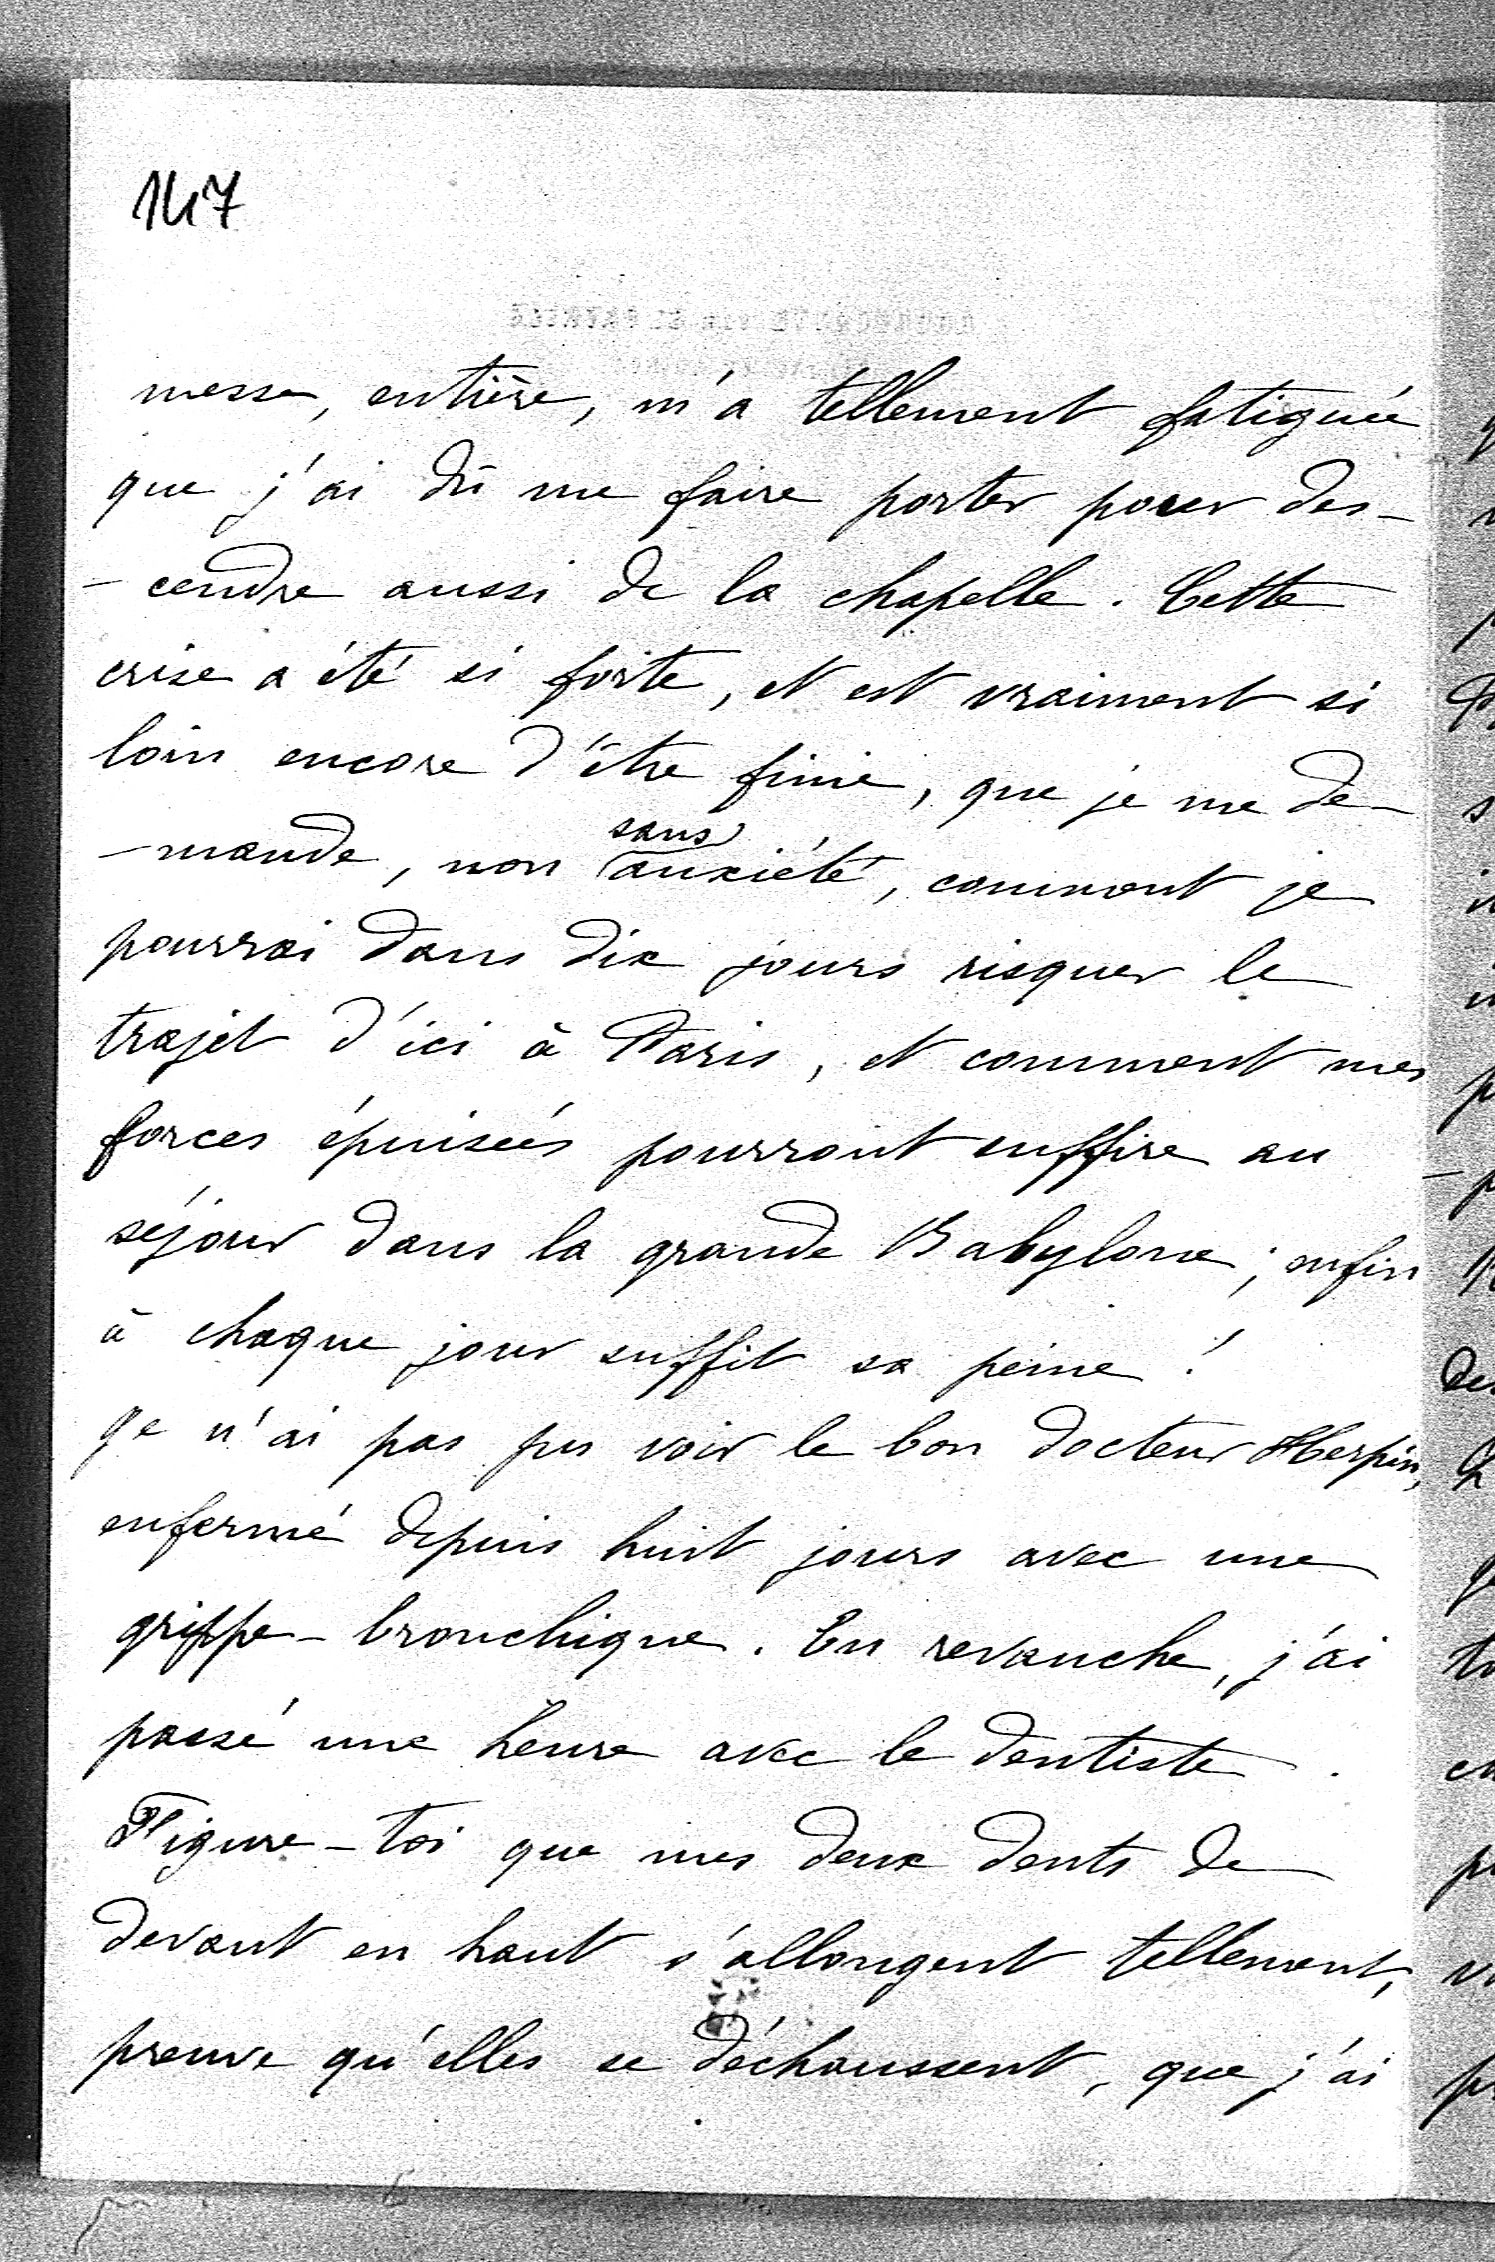 147
messe, entière, m'a tellement fatiguée
que j'ai dû me faire porter pour des-
- cendre aussi de la chapelle. Cette
crise a été si forte, et est vraiment si
loin encore d'être finie, que je me de
- mande, non sans anxiété, comment je
pourrai dans dix jours risquer le
trajet d'ici à Paris, et comment mes
forces épuisées pourront suffire au
séjour dans la grande Babylone; enfin
à chaque jour suffit sa peine!
Je n'ai pas pu voir le bon docteur Herpin,
enfermé depuis huit jours avec une
grippe-bronchique. En revanche, j'ai
passé une heure avec le dentiste.
Figure-toi que mes deux dents de
devant en haut s'allongent tellement,
preuve qu'elles se déchaussent, que j'ai